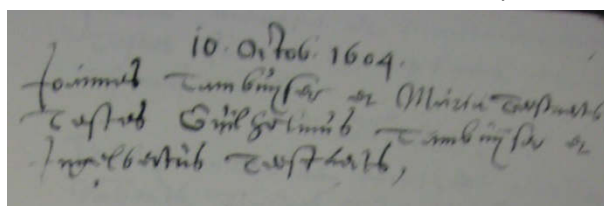 10. Octob. 1604.
Joannes Tambuÿser et Maria Testaerts
Testes Guilhelmus Tambuÿser et
Ingelbertus